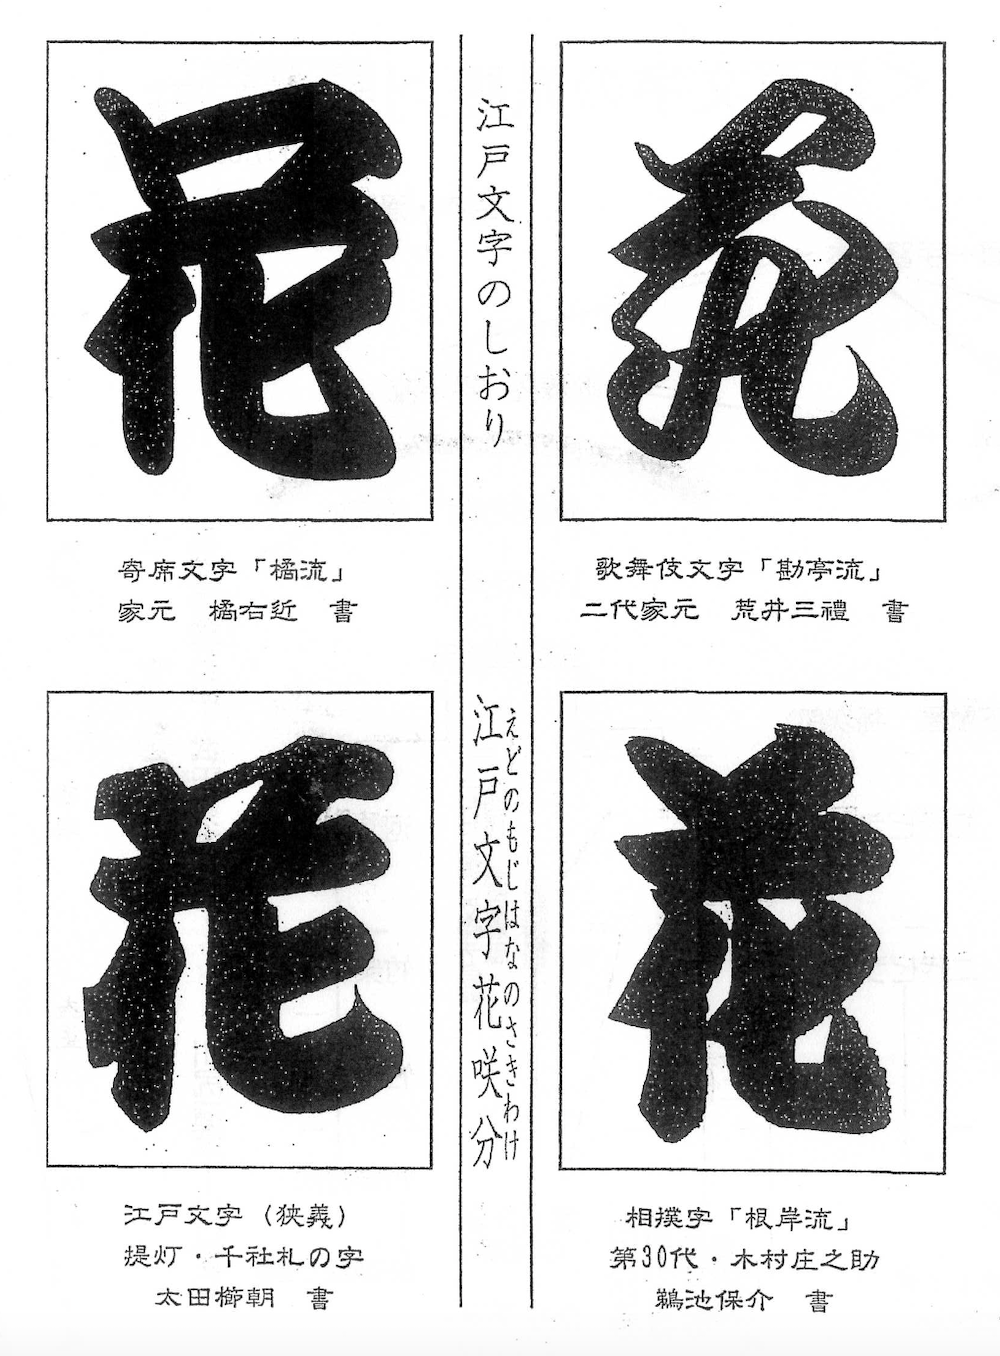 江戸文字のしおり
江戸文字花咲分
えどのもじはなのさきわけ
花
歌舞伎文字「勘亭流」
二代家元 荒井三禮 書
花
寄席文字「橘流」
家元 橘右近 書
花
相撲字「根岸流」
第30代・木村庄之助
鵜池保介 書
花
江戸文字(狭義)
提灯・千社札の字
太田櫛朝 書